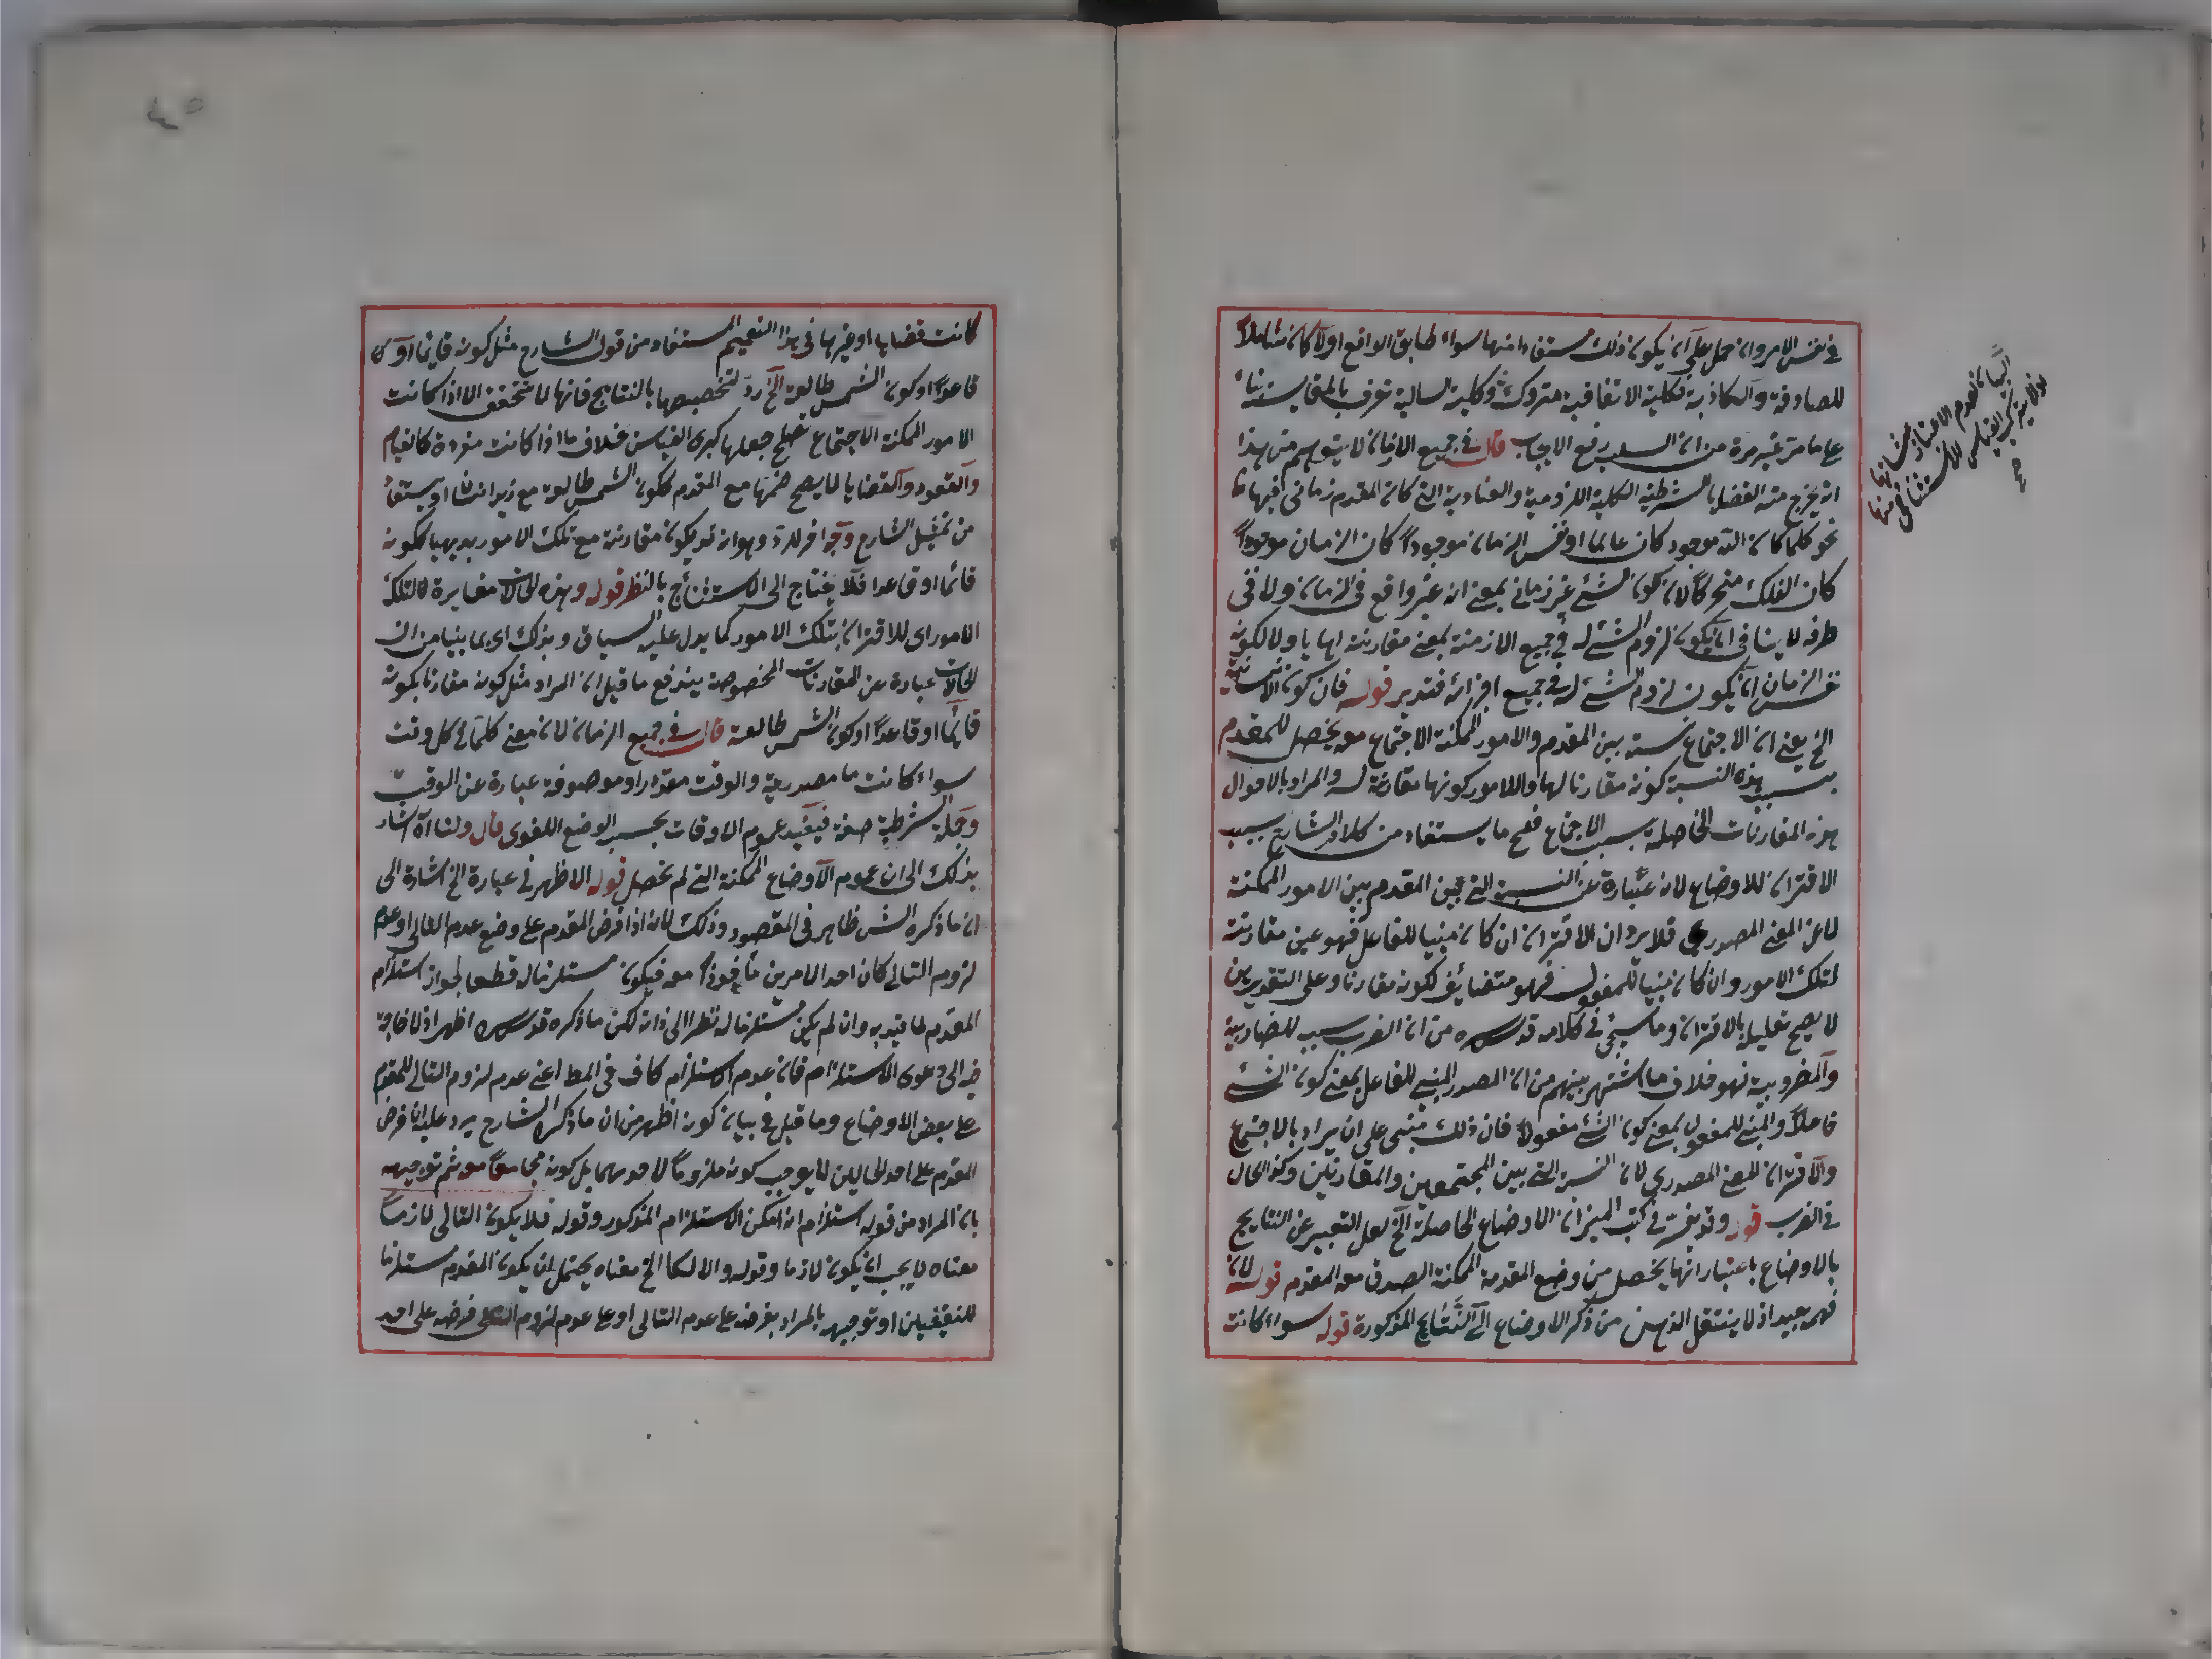 في نفس الامر وان حمل على ان يكون ذلك مستفادا منها سواء طابق الواقع اولا كان شاملا
للصادقة والكاذبة فكلية الاتفاقية متروكة وكلية السالبة تعرف بالمقايسة بناء
على ما مر غير مرة من ان السلب رفع الايجاب قال في جميع الازمان لا يتوهم من هذا
انه يخرج منه القضايا الشرطية الكلية اللزومية والعنادية التي كان المقدم زماني فيها
نحو كلما كان الله موجود كان عالما او نفس الزمان موجودا كان الزمان موجودا
كان الفلك متحركا لان كون الشئ غير زماني بمعنى انه غير واقع في الزمان ولا في
طرفه لا ينافي ان يكون لزوم الشئ له في جميع الازمنة بمعنى مقارنته اياها ولا لكونه
نفس الزمان ان يكون لزوم الشئ له في جميع اجزائه فتدبر قوله فان كون الانسانية
الخ يعني ان الاجتماع نسبة بين المقدم والامور الممكنة الاجتماع معه يحصل للمقدم
بسبب هذه النسبة كونه مقارنا لها وللامور كونها مقارنة له والمراد بالاحوال
هذه المقارنات الحاصلة بسبب الاجتماع فصح ما يستفاد من كلام الشارح سبب
الاقتران للاوضاع لانه عبارة عن النسبة التي بين المقدم بين الامور الممكنة
لا عن المعنى المصدري فلا يرد ان الاقتران ان كان مبنيا للفاعل فهو عين مقارنته
لتلك الامور وان كان مبنيا للمفعول فهو متضايف لكونه مقارنا وعلى التقديرين
لا يصح تعليله بالاقتران وما سيجئ في كلامه قدس سره من ان الضرب سبب للضاربية
والمضروبية فهو خلاف ما اشتهر بينهم من ان المصدر المبني للفاعل بمعنى كون الشئ
فاعلا والمبني للمفعول بمعنى كون الشئ مفعولا فان ذلك مبني على ان يراد بالاجتماع
والاقتران المعنى المصدري لان النسبة التي بين المجتمعين والمقارنين وكذا الحال
في الضرب قوله وقد يفسر في كتب الميزان الاوضاع الحاصلة الخ لعل التعبير عن النتايج
بالاوضاع باعتبار انها يحصل من وضع المقدمة الممكنة الصدق مع المقدم قوله لان
فهمه بعيد اذ لا ينتقل الذهن من ذكر الاوضاع الى النتايج المذكورة قوله سواء كانت
كانت قضايا او غيرها في هذا التعميم المستفاد من قول الشارح مثل كونه قايما او
قاعدا او كون الشمس طالعة الخ رد لتخصيصها بالنتايج فانها لا تتحقق الا اذا كانت
الامور الممكنة الاجتماع تصلح جعلها كبرى القياس بخلاف ما اذا كانت مفردة كالقيام
والقعود والقضايا لا يصح ضمها مع المقدم ككون الشمس طالعة مع زيد انسانا ويستفاد
من تمثيل الشارح وجه اخر للرد وهو انه قد يكون مقارنته مع تلك الامور بديهيا ككونه
قائما او قاعدا فلا يحتاج الى الاستنتاج بالنظر قوله وهذه الحالات مغايرة لتلك
الامور اى للاقتران بتلك الامور كما يدل عليه السياق وبذلك اى بما بينا من ان
الحالات عبارة عن المقارنات المخصوصة يندفع ما قيل ان المراد مثل كونه مقارنا بكونه
قايما او قاعدا او كون الشمس طالعة قال في جميع الزمان لان معنى كلما في كل وقت
سواء كانت ما مصدرية والوقت مقدرا او موصوفة عبارة عن الوقت
وجملة الشرطية صفة فيفيد عموم الاوقات بحسب الوضع اللغوى قال ولنا اه اشار
بذلك الى ان عموم الاوضاع الممكنة التي لم تحصل قوله الاظهر في عبارة الخ اشارة الى
ان ما ذكره الش ظاهر في المقصود وذلك لانه اذا فرض المقدم على وضع عدم التالى او عدم
لزوم التالى كان احد الامرين ماخوذا معه فيكون مستلزما له قطعا لجواز استلزام
المقدم لما قيد به وان لم يكن مستلزما له نظرا الى ذاته لكن ما ذكره قدس سره اظهر اذ لا حاجة
فيه الى دعوى الاستلزام فان عدم الاستلزام كاف في المط اعنى عدم لزوم التالى للمقدم
على بعض الاوضاع وما قيل في بيان كونه اظهر من ان ما ذكره الشارح يرد عليه ان فرض
المقدم على احد الحالين لا يوجب كونه ملزوما لاحدهما بل كونه مجامعا معه ثم توجيهه
بان المراد من قوله استلزام انه امكن الاستلزام المذكور وقوله فلا يكون التالى لازما
معناه لا يجب ان يكون لازما وقوله والا لكا الخ معناه يحتمل ان يكون المقدم مستلزما
للنقيضين او توجيهه بالمراد بفرضه على عدم التالى او على عدم لزوم التالى فرضه على احد